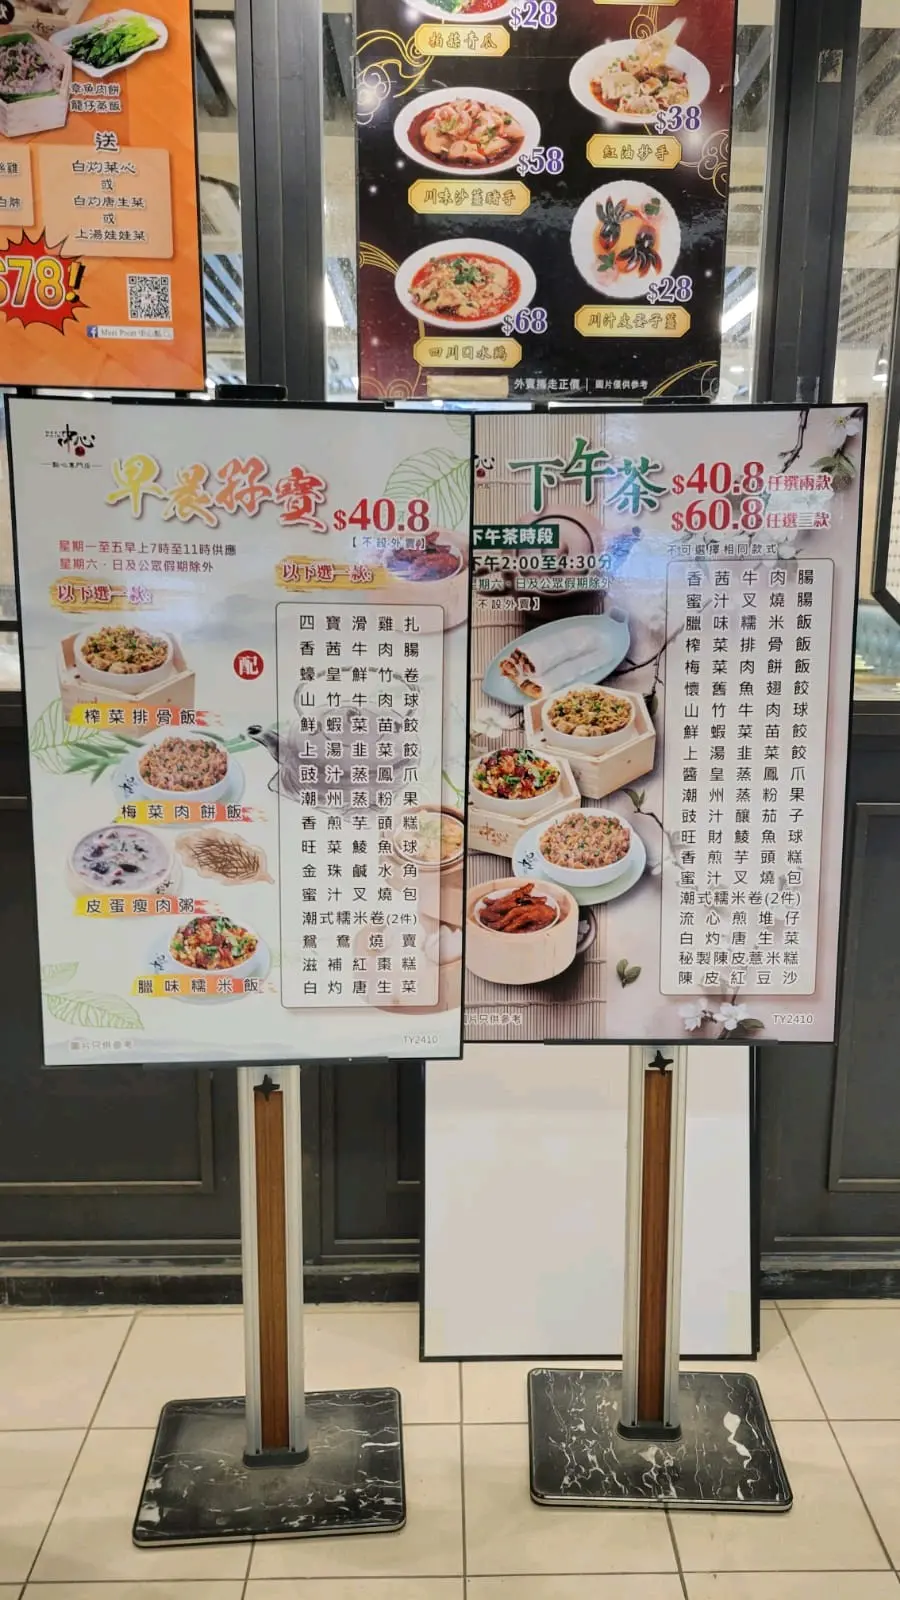 章魚肉餅
籠仔蒸飯
送
白灼菜心
或
白灼唐生菜
或
上湯娃娃菜
$78!
$28
拍蒜青瓜
$38
紅油抄手
$58
川味沙薑豬手
$28
川汁皮蛋子薑
$68
四川口水鷄
外賣攜走正價 | 圖片僅供參考
中心
點心專門店
早晨孖寶
$40.8
【不設外賣】
星期一至五早上7時至11時供應
星期六、日及公眾假期除外
以下選一款:
榨菜排骨飯
梅菜肉餅飯
皮蛋瘦肉粥
臘味糯米飯
配
以下選一款:
四寶滑雞扎
香茜牛肉腸
蠔皇鮮竹卷
山竹牛肉球
鮮蝦菜苗餃
上湯韭菜餃
豉汁蒸鳳爪
潮州蒸粉果
香煎芋頭糕
旺菜鯪魚球
金珠鹹水角
蜜汁叉燒包
潮式糯米卷(2件)
鴛鴦燒賣
滋補紅棗糕
白灼唐生菜
圖片只供參考
TY2410
下午茶
$40.8任選兩款
$60.8任選三款
不可選擇相同款式
下午茶時段
下午2:00至4:30分
期六、日及公眾假期除外
不設外賣】
香茜牛肉腸
蜜汁叉燒腸
臘味糯米飯
榨菜排骨飯
梅菜肉餅飯
懷舊魚翅餃
山竹牛肉球
鮮蝦菜苗餃
上湯韭菜餃
醬皇蒸鳳爪
潮州蒸粉果
豉汁釀茄子
旺財鯪魚球
香煎芋頭糕
蜜汁叉燒包
潮式糯米卷(2件)
流心煎堆仔
白灼唐生菜
秘製陳皮薏米糕
陳皮紅豆沙
片只供參考
TY2410